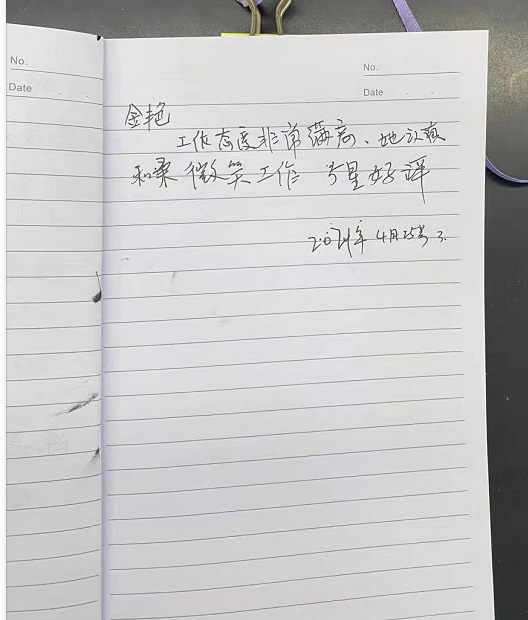 No.
Date
No.
Date
金艳
工作态度非常满意、她认真
和柔 微笑工作 5星好评
2021年 4月25号